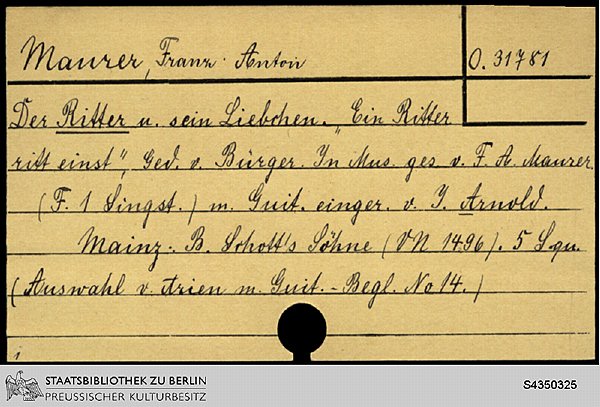 Maurer, Franz Anton
O. 31781
Der Ritter u. sein Liebchen. „Ein Ritter
ritt einst“, Ged. v. Bürger. In Mus. ges. v. F. A. Maurer.
(F. 1 Singst.) m. Guit. einger. v. J. Arnold.
Mainz: B. Schott's Söhne (VN 1496). 5 S. qu.
(Auswahl v. Arien m. Guit.-Begl. No 14.)
i
STAATSBIBLIOTHEK ZU BERLIN
PREUSSISCHER KULTURBESITZ
S4350325